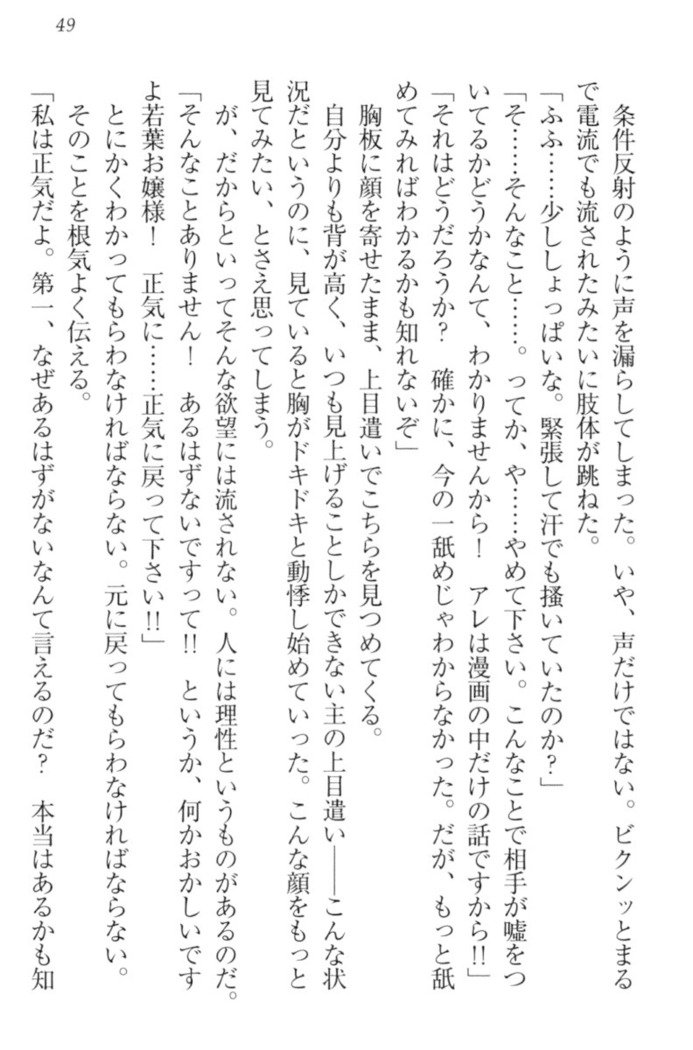 49
条件反射のように声を漏らしてしまった。いや、声だけではない。ビクンッとまる
で電流でも流されたみたいに肢体が跳ねた。
「ふふ……少ししょっぱいな。緊張して汗でも掻いていたのか？」
「そ……そんなこと……。ってか、や……やめて下さい。こんなことで相手が嘘をつ
いてるかどうかなんて、わかりませんから！　アレは漫画の中だけの話ですから!!」
「それはどうだろうか？　確かに、今の一舐めじゃわからなかった。だが、もっと舐
めてみればわかるかも知れないぞ」
胸板に顔を寄せたまま、上目遣いでこちらを見つめてくる。
自分よりも背が高く、いつも見上げることしかできない主の上目遣い――こんな状
況だというのに、見ていると胸がドキドキと動悸し始めていった。こんな顔をもっと
見てみたい、とさえ思ってしまう。
が、だからといってそんな欲望には流されない。人には理性というものがあるのだ。
「そんなことありません！　あるはずないですって!!　というか、何かおかしいです
よ若葉お嬢様！　正気に……正気に戻って下さい!!」
とにかくわかってもらわなければならない。元に戻ってもらわなければならない。
そのことを根気よく伝える。
「私は正気だよ。第一、なぜあるはずがないなんて言えるのだ？　本当はあるかも知